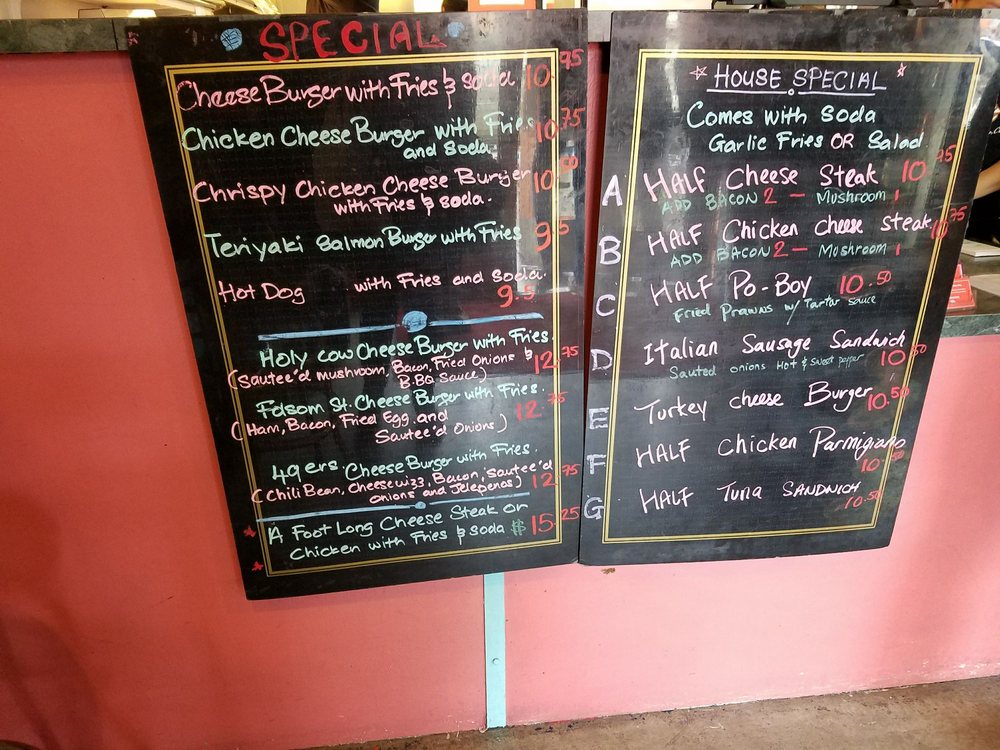 SPECIAL
Cheese Burger with Fries & soda 10.75
Chicken Cheese Burger with Fries 10.75
and soda
Chrispy Chicken Cheese Burger 10.50
with Fries & soda.
Teriyaki Salmon Burger with Fries 9.5
Hot Dog with Fries and Soda.
9.5
Holy cow Cheese Burger with Fries.
(Sautee'd mushroom, Bacon, Fried Onions & 12.75
B.BQ Sauce)
Folsom St. Cheese Burger with Fries.
(Ham, Bacon, Fried Egg and 12.75
Sautee'd Onions)
49ers Cheese Burger with Fries.
(Chili Bean, Cheese wizz, Bacon, Sautee'd
onions and Jelepenos) 12.75
A Foot Long Cheese Steak or
Chicken with Fries & soda $15.25
HOUSE SPECIAL
Comes with soda
Garlic Fries OR Salad
A HALF Cheese Steak 10.95
ADD BACON 2 — Mushroom 1
B HALF Chicken cheese steak 10.75
ADD BACON 2 — Mushroom 1
C HALF Po-Boy 10.50
Fried Prawns w/ Tartar sauce
D Italian Sausage Sandwich
Sauted onions Hot & Sweet pepper 10.50
E Turkey cheese Burger 10.50
F HALF Chicken Parmigiano
10.50
G HALF Tuna SANDWICH
10.50